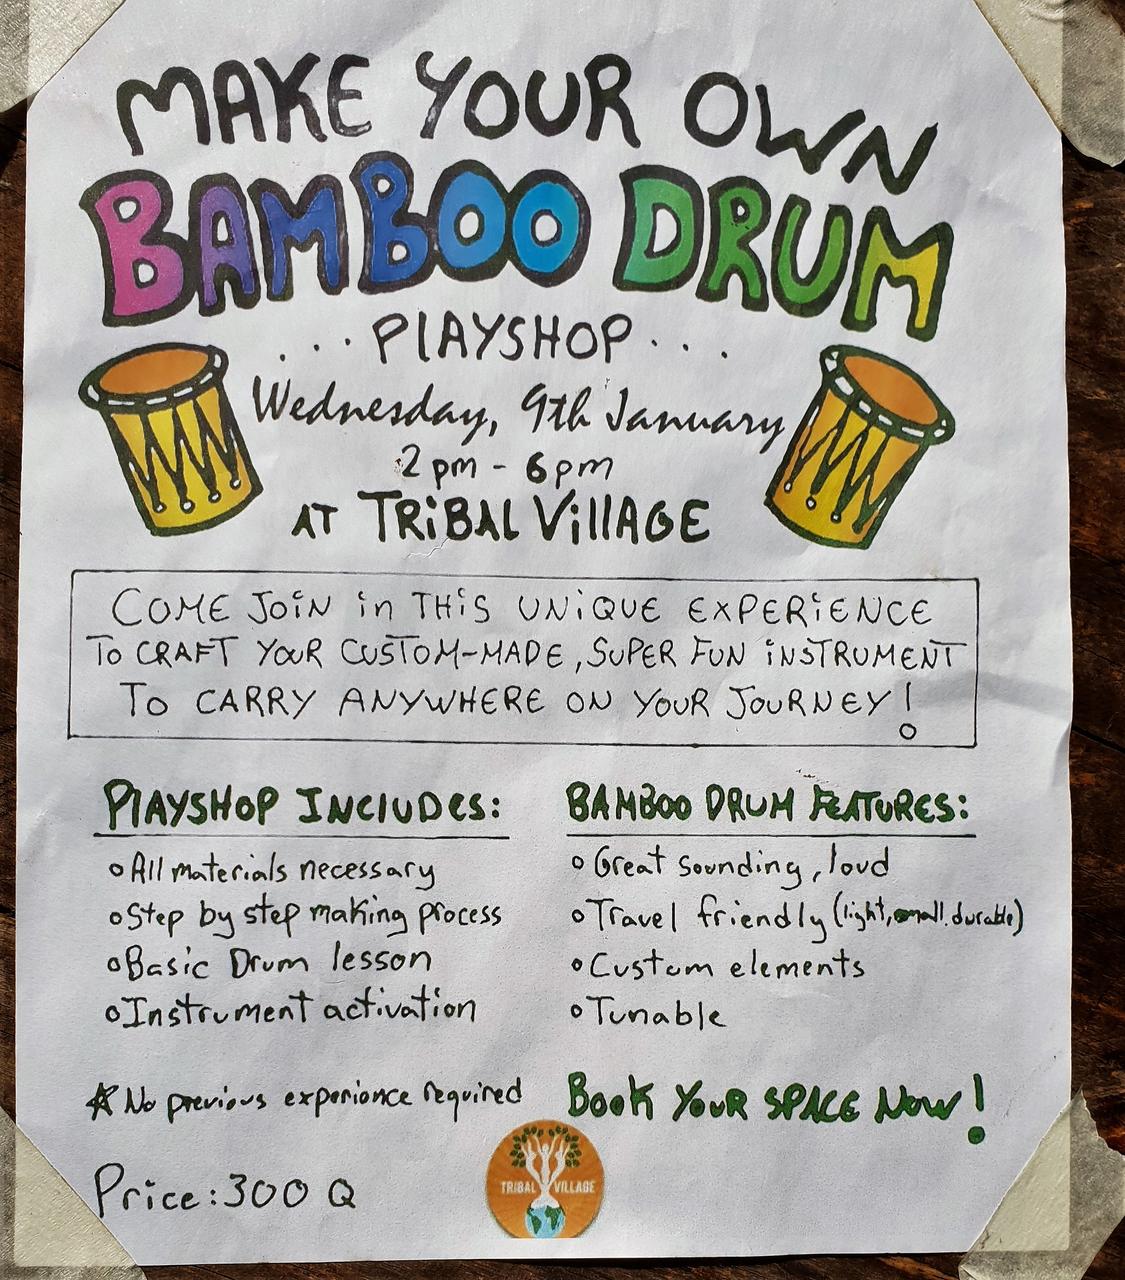 MAKE YOUR OWN
BAMBOO DRUM
...PlAYSHOP...
Wednesday, 9th January
2 pm - 6pm
AT TRiBAL VillAGE
COME JOiN in THiS UNiQUE EXPERiENCE
To CRAFT YOUR CUSTOM-MADE, SUPER FUN iNSTRUMENT
To CARRY ANYWHERE ON YOUR JOURNEY!
PlAYSHOP INCLUDES:
o All materials necessary
o Step by step making process
o Basic Drum lesson
o Instrument activation
BAMBOO DRUM FEATURES:
o Great sounding, loud
o Travel friendly (light, small, durable)
o Custom elements
o Tunable
☆ No previous experience required
Book YOUR SPACE Now!
Price: 300 Q
TRIBAL VILLAGE